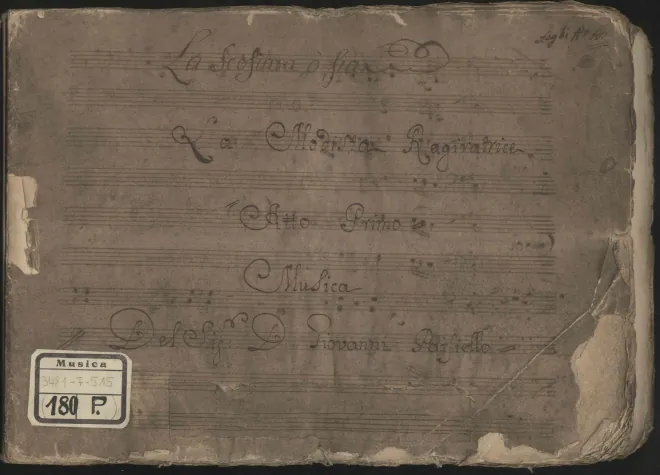 fogli n°
La Scofiara ò sia
La Modista Ragiratrice
Atto Primo
Musica
Del Sig.r D. Giovanni Paisiello
Musica
3481-7-515
180 P.